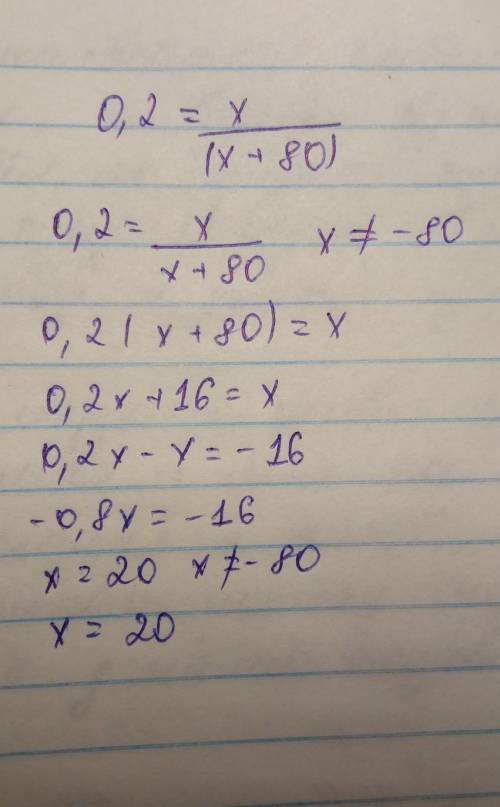 0,2 = x / (x + 80)
0,2 = x / x + 80 x ≠ -80
0,2 ( x + 80) = x
0,2x + 16 = x
0,2x - x = - 16
- 0,8x = - 16
x = 20 x ≠ - 80
x = 20